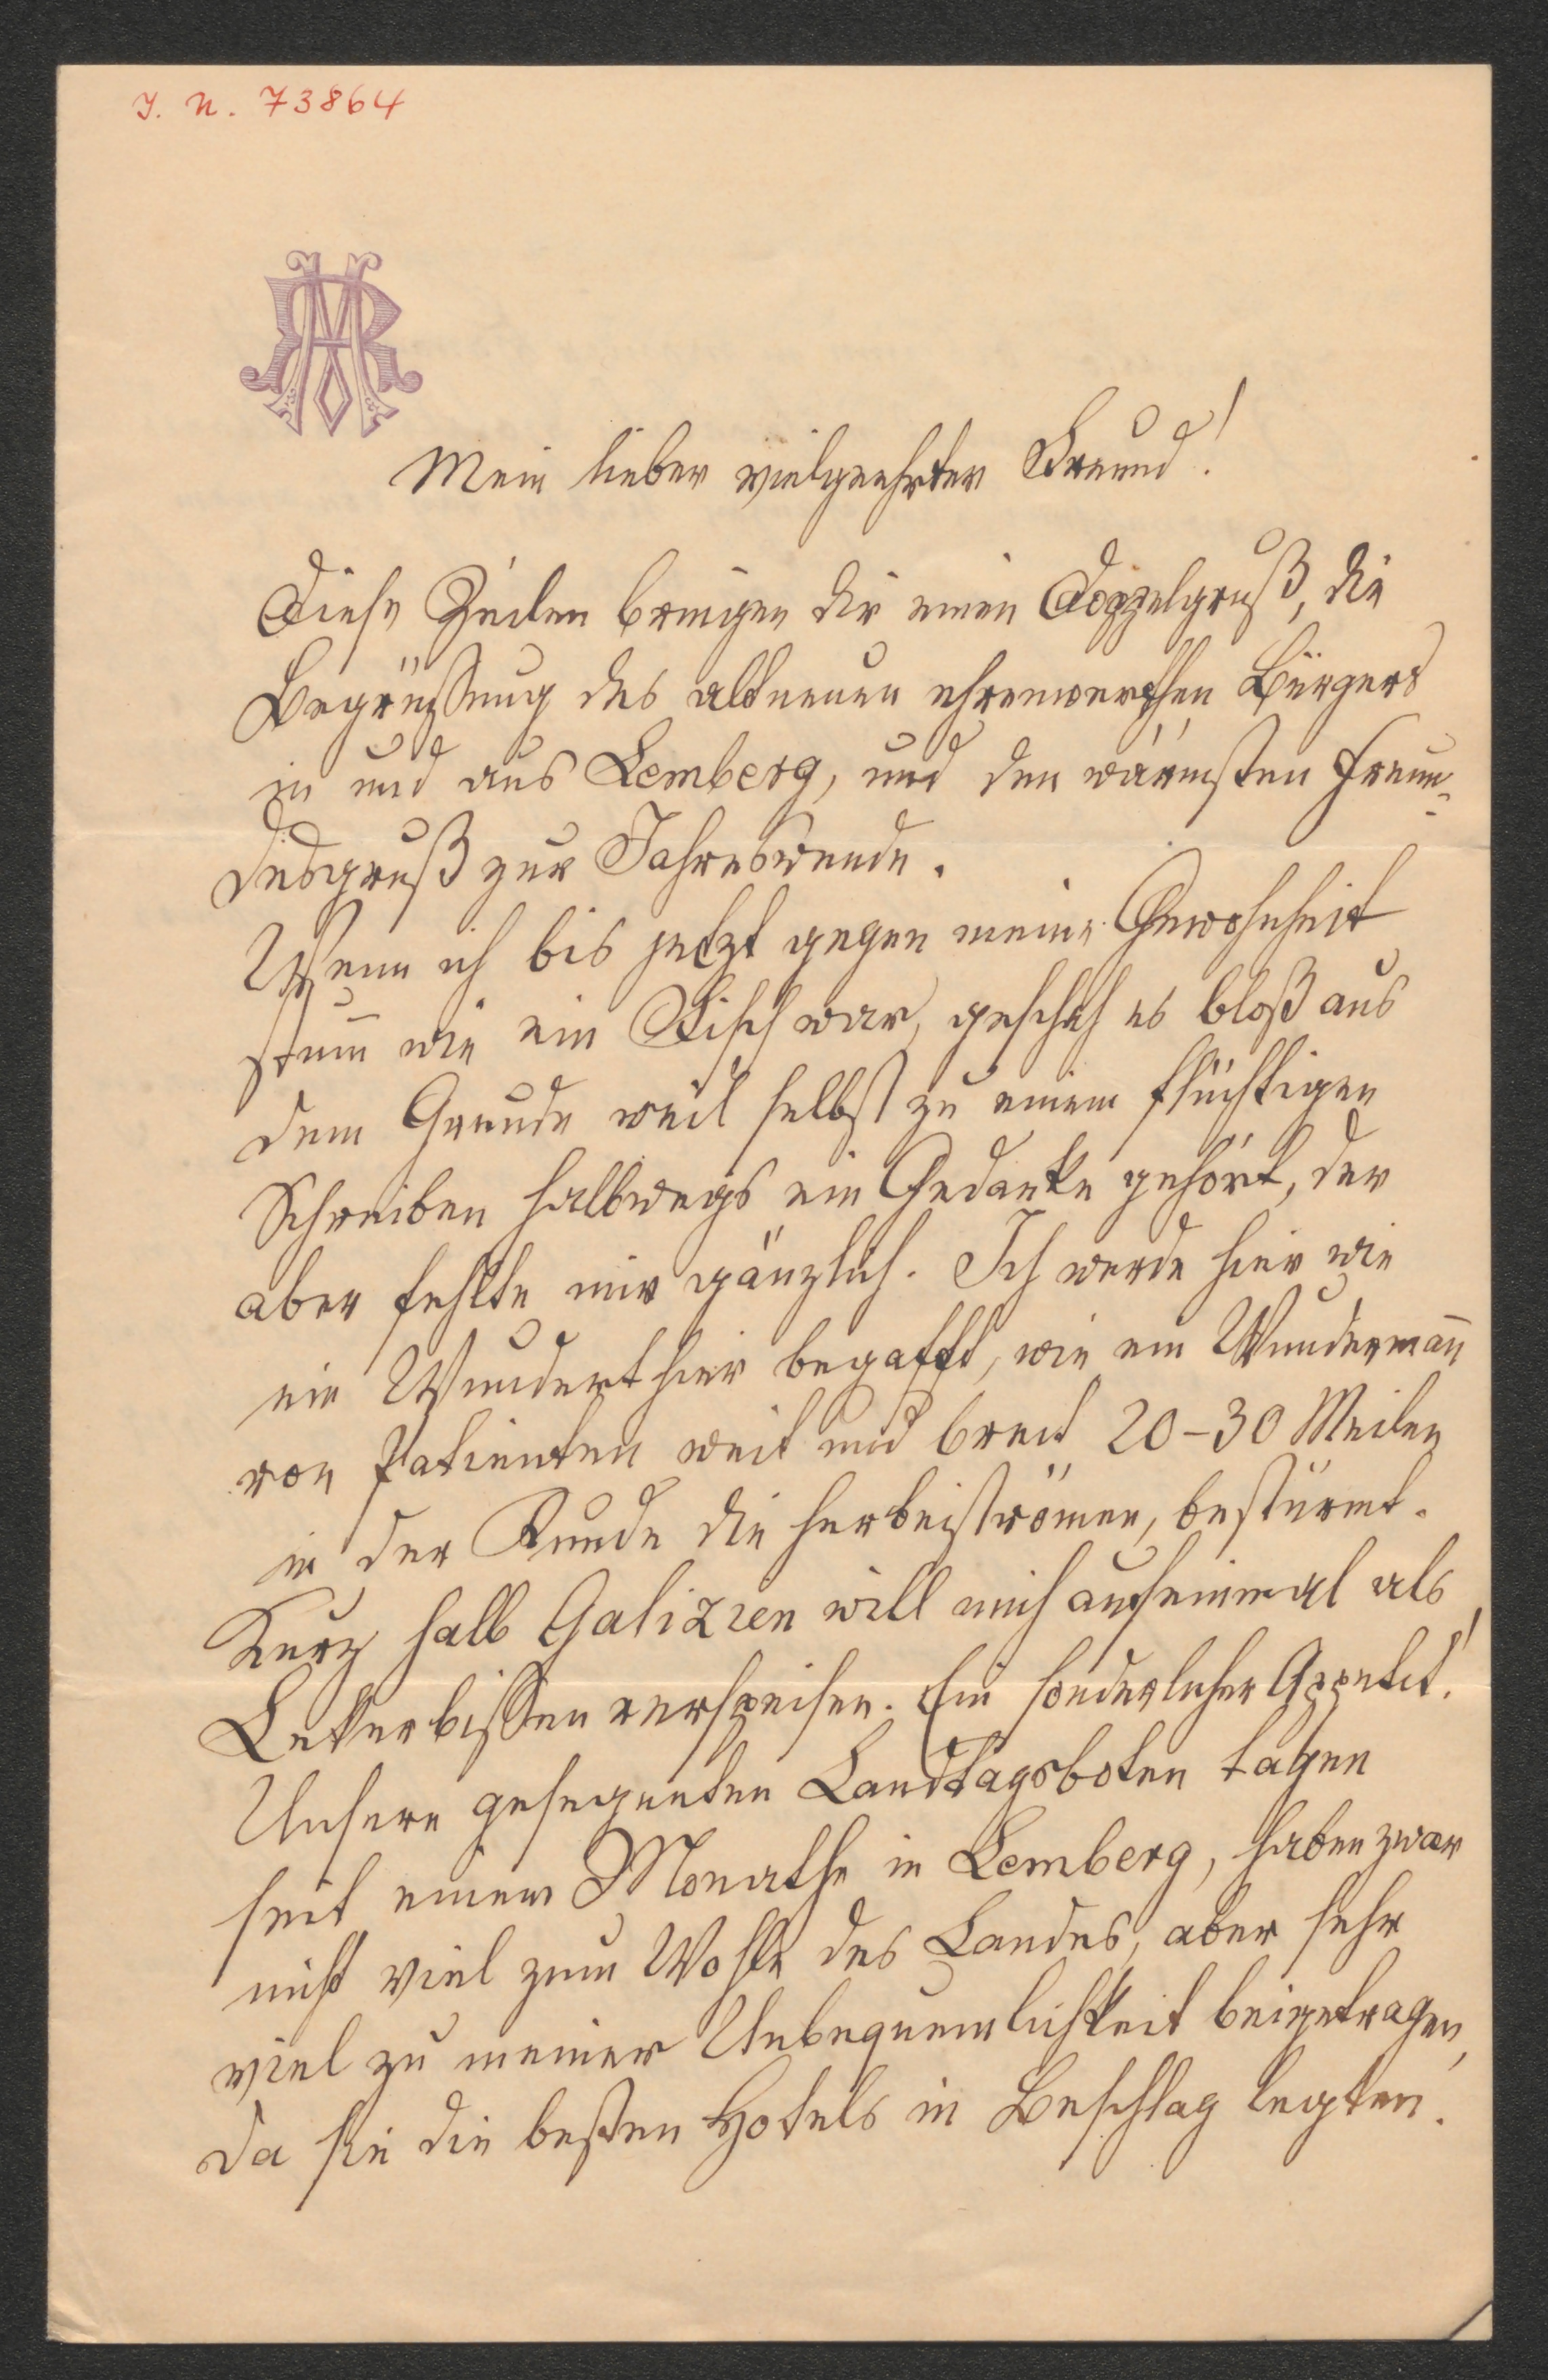 I. N. 73864
AR
Mein lieber vielgeehrter Freund!
Diese Zeilen bringen dir einen Doppelgruß, die
Begrüßung des altneuen ehrenwerthen Bürgers
in und aus Lemberg, und den wärmsten Freun-
desgruß zur Jahreswende.
Wenn ich bis jetzt gegen meine Gewohnheit
stum̅ wie ein Fisch war, geschah es bloß aus
dem Grunde weil selbst zu einem flüchtigen
Schreiben halbwegs ein Gedanke gehört, der
aber fehlte mir gänzlich. Ich werde hier wie
ein Wunderthier begafft, wie ein Wunderman̅
von Patienten weit und breit 20-30 Meilen
in der Runde die herbeiströmen, bestürmt.
Kurz halb Galizien will mich auf einmal als
Lekerbissen verspeisen. Ein sonderlicher Appetit!
Unsere gesegneten Landtagsboten tagen
seit einem Monathe in Lemberg, haben zwar
nicht viel zum Wohle des Landes, aber sehr
viel zu meiner Unbequemlichkeit beigetragen,
da sie die besten Hotels in Beschlag legten.